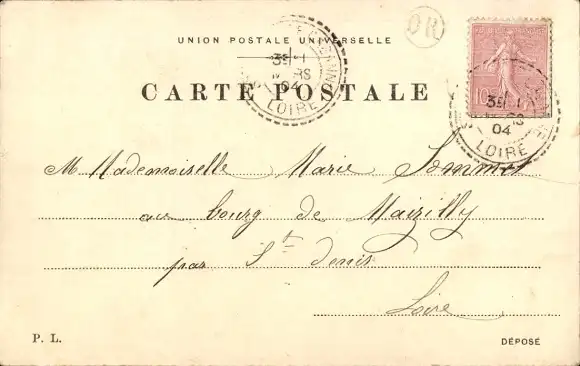 UNION POSTALE UNIVERSELLE
OR
CARTE POSTALE
3E 1
04
LOIRE
10
3E 1
04
LOIRE
M Mademoiselle Marie Sommer
au bourg de Maizilly
par St denis
Loire
P. L.
DÉPOSÉ